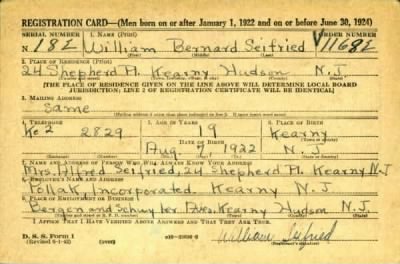 REGISTRATION CARD—(Men born on or after January 1, 1922 and on or before June 30, 1924)
SERIAL NUMBER 1. NAME (Print) ORDER NUMBER
N 182 William Bernard Seifried 11682
(First) (Middle) (Last)
2. PLACE OF RESIDENCE (Print)
24 Shepherd Pl. Kearny Hudson N.J.
(Number and street) (Town, township, village, or city) (County) (State)
[THE PLACE OF RESIDENCE GIVEN ON THE LINE ABOVE WILL DETERMINE LOCAL BOARD
JURISDICTION; LINE 2 OF REGISTRATION CERTIFICATE WILL BE IDENTICAL]
3. MAILING ADDRESS
Same
(Mailing address if other than place indicated on line 2. If same, insert word same)
4. TELEPHONE 5. AGE IN YEARS 6. PLACE OF BIRTH
Ke 2 2829 19 Kearny
DATE OF BIRTH (Town or county)
Aug 7 1922 N.J.
(Exchange) (Number) (Mo.) (Day) (Yr.) (State or country)
7. NAME AND ADDRESS OF PERSON WHO WILL ALWAYS KNOW YOUR ADDRESS
Mrs. Alfred Seifried, 24 Shepherd Pl. Kearny N.J
8. EMPLOYER'S NAME AND ADDRESS
Pollak, Incorporated. Kearny N.J
9. PLACE OF EMPLOYMENT OR BUSINESS
Bergen and Schuyler Aves. Kearny Hudson N.J
(Number and street or R. F. D. number) (Town) (County) (State)
I AFFIRM THAT I HAVE VERIFIED ABOVE ANSWERS AND THAT THEY ARE TRUE.
D. S. S. Form 1
William Seifried